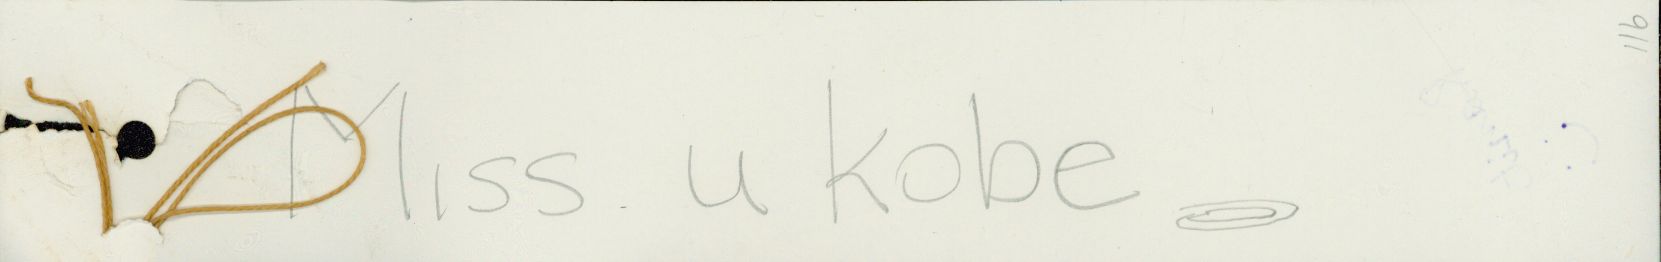 Miss u kobe
911